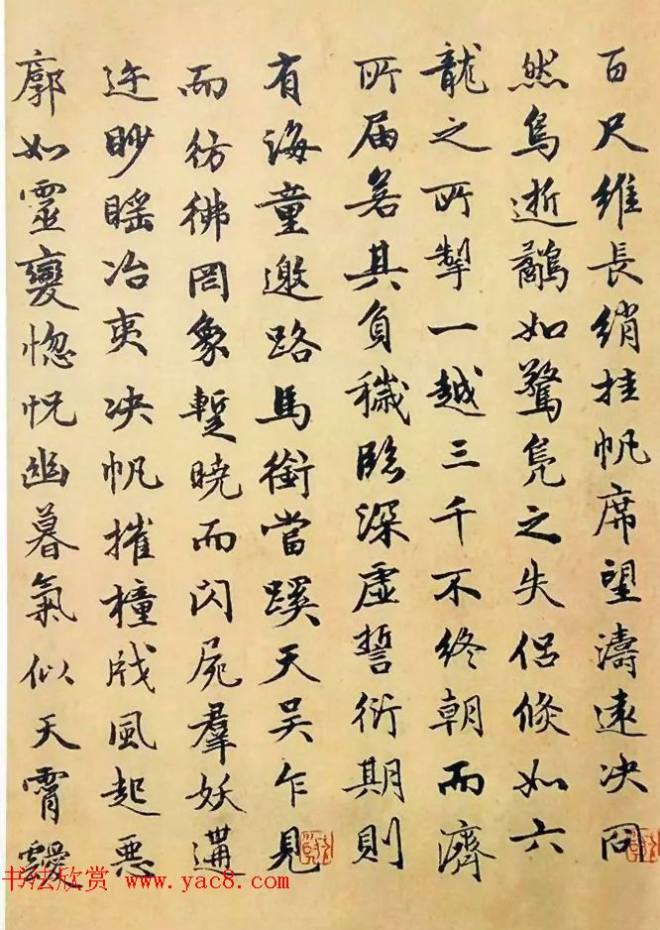 百尺維長綃挂帆席望濤遠决冏
然鳥逝鷸如驚鳧之失侶倏如六
龍之所掣一越三千不終朝而濟
所届若其負穢臨深虛誓衍期則
有海童邀路馬銜當蹊天吴乍見
而彷彿罔象蹔曉而閃屍羣妖遘
迕眇䁘冶夷决帆摧橦戕風起惡
廓如靈變惚怳幽暮氣似天霄靉
书法欣赏 www.yac8.com